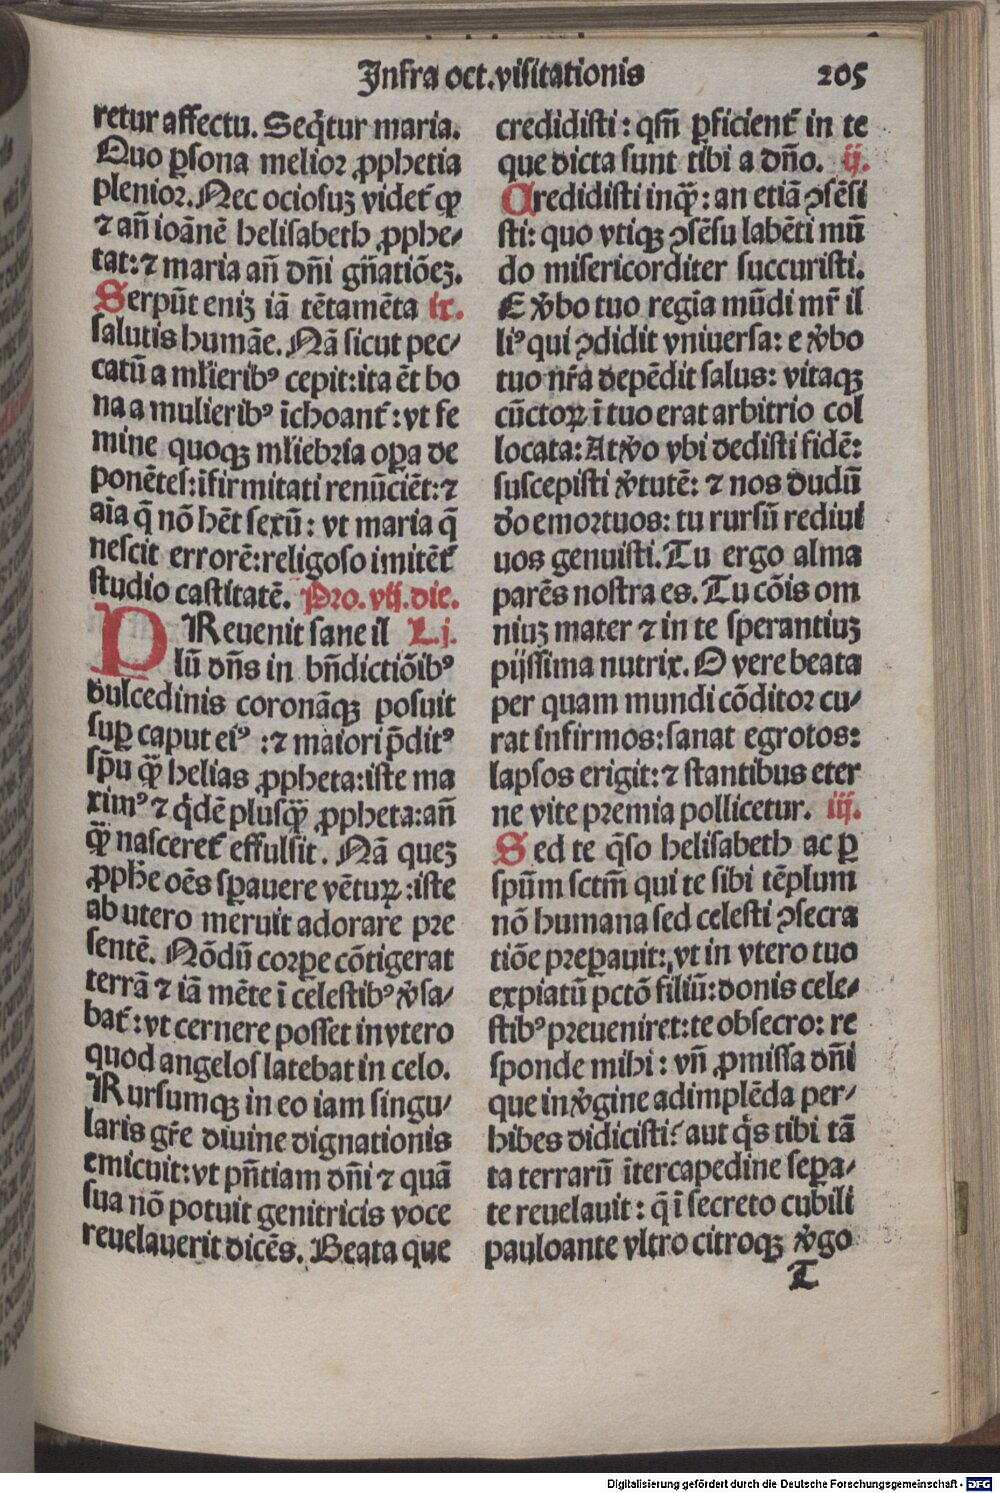 Infra oct.visitationis 205
retur affectu. Seq̃tur maria.
Quo ꝑsona melior ꝓphetia
plenior. Nec ociosuꝫ videt᷑ ꝙ
⁊ añ ioãnẽ helisabeth ꝓphe/
tat:⁊ maria añ dñi gñatiõeꝫ.
Serpũt eniꝫ iã tẽtamẽta ix.
salutis humãe. Nã sicut pec/
catũ a ml̃ieribꝰ cepit:ita ẽt bo
na a mulieribꝰ ĩchoant᷑:vt fe
mine quoqꝫ ml̃iebria oꝑa de
ponẽtes:ĩfirmitati renũciẽt:⁊
aĩa q̃ nõ hẽt sexũ: vt maria q̃
nescit errorẽ:religoso imitẽt᷑
studio castitatẽ. Pro.vij.die.
PReuenit sane il L.j.
lũ dñs in bñdictiõibꝰ
dulcedinis coronãqꝫ posuit
suꝑ caput eiꝰ :⁊ maiori p̃ditꝰ
sp̃u q̃ꝫ helias ꝓpheta:iste ma
ximꝰ ⁊ q̇dẽ plusq̃ꝫ ꝓpheta:añ
q̃ꝫ nasceret᷑ effulsit. Nã queꝫ
ꝓphe̅ oẽs sꝑauere vẽtuꝝ :iste
ab utero meruit adorare pre
sentẽ. Nõdũ corꝑe cõtigerat
terrã ⁊ iã mẽte ĩ celestibꝰ v̾sa/
bat᷑:vt cernere posset in vtero
quod angelos latebat in celo.
Rursumqꝫ in eo iam singu/
laris gr̃e diuine dignationis
emicuit:vt pñtiam dñi ⁊ quã
sua nõ potuit genitricis voce
reuelauerit dicẽs. Beata que
credidisti : qm̃ ꝑficient᷑ in te
que dicta sunt tibi a dño. ij.
Credidisti inq̃ꝫ: an etiã ꝯsẽsi
sti: quo vtiqꝫ ꝯsẽsu labẽti mũ
do misericorditer succuristi.
E v̾bo tuo regia mũdi mr̃ il
liꝰ qui ꝯdidit vniuersa: e v̾bo
tuo nr̃a depẽdit salus: vitaqꝫ
cũctoꝝ ĩ tuo erat arbitrio col
locata: At v̾o vbi dedisti fidẽ:
suscepisti v̾tutẽ: ⁊ nos dudũ
d̾o emortuos: tu rursũ rediui
uos genuisti. Tu ergo alma
parẽs nostra es. Tu cõis om
niuꝫ mater ⁊ in te sperantiuꝫ
pijssima nutrix. O vere beata
per quam mundi cõditor cu/
rat infirmos:sanat egrotos:
lapsos erigit:⁊ stantibus eter
ne vite premia pollicetur. iij.
Sed te q̃so helisabeth ac ꝑ
spũm sctm̃ qui te sibi tẽplum
nõ humana sed celesti ꝯsecra
tiõe preꝑauit:,vt in vtero tuo
expiatũ pctõ filiũ:donis cele/
stibꝰ preueniret:te obsecro: re
sponde mihi : vñ ꝓmissa dñi
que in v̾gine adimplẽda per/
hibes didicisti? aut q̇s tibi tã
ta terrarũ ĩtercapedine seꝑa/
te reuelauit : q̃ ĩ secreto cubili
pauloante vltro citroqꝫ v̾go
T
Digitalisierung gefördert durch die Deutsche Forschungsgemeinschaft - DFG